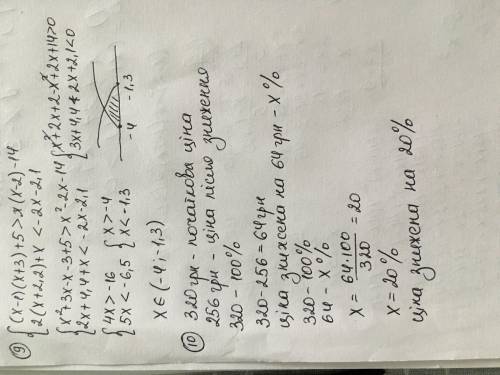 9) { (x-1)(x+3)+5 > x(x-2)-14
2(x+2,2)+x < -2x-2,1
{ x²+3x-x-3+5 > x²-2x-14 { x²+2x+2-x²+2x+14>0
2x+4,4+x < -2x-2,1 { 3x+4,4+2x+2,1<0
{ 4x > -16 { x > -4
5x < -6,5 { x < -1,3
-4 -1,3
x ∈ (-4; -1,3)
10) 320 грн - початкова ціна
256 грн - ціна після зниження
320 - 100%
320-256 = 64 грн
ціна знижена на 64 грн - x%
320 - 100%
64 - x%
x = 64·100 / 320 = 20
x = 20%
ціна знижена на 20%